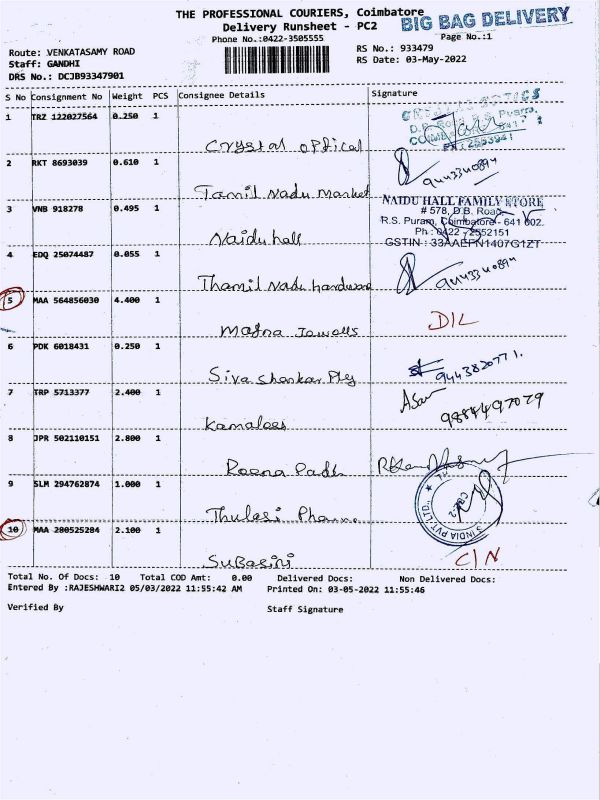 THE PROFESSIONAL COURIERS, Coimbatore
BIG BAG DELIVERY
Delivery Runsheet - PC2
Phone No.:0422-3505555
Page No.:1
Route: VENKATASAMY ROAD
RS No.: 933479
Staff: GANDHI
RS Date: 03-May-2022
DRS No.: DCJB93347901
S No Consignment No Weight PCS Consignee Details Signature
1 TRZ 122027564 0.250 1
Crystal optical
2 RKT 8693039 0.610 1
9443340894
Tamil Nadu Market
3 VNB 918278 0.495 1
NAIDU HALL FAMILY STORE
# 578, D.B. Road,
R.S. Puram, Coimbatore - 641 002.
Ph : 0422 - 2552151
GSTIN : 33AAEPN1407G1ZT
Naidu hall
4 EDQ 25074487 0.055 1
9443340894
Thamil Nadu hardware
5 MAA 564856030 4.400 1
D/L
Magna Jewells
6 PDK 6018431 0.250 1
9443820771.
Siva Shankar Ply
7 TRP 5713377 2.400 1
9884497079
Kamalees
8 JPR 502110151 2.800 1
Reena Padh
9 SLM 294762874 1.000 1
INDIA PVT LTD
CBE-2
Thulasi Pharma
10 MAA 280525284 2.100 1
C/N
SuBasini
Total No. Of Docs: 10 Total COD Amt: 0.00 Delivered Docs: Non Delivered Docs:
Entered By :RAJESHWARI2 05/03/2022 11:55:42 AM Printed On: 03-05-2022 11:55:46
Verified By Staff Signature